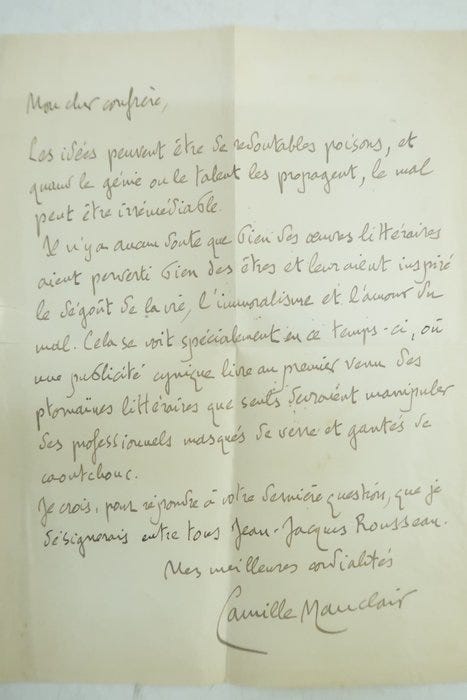 Mon cher confrère,
Les idées peuvent être de redoutables poisons, et
quand le génie ou le talent les propagent, le mal
peut être irrémédiable.
Il n'y a aucun doute que bien des œuvres littéraires
aient perverti bien des êtres et leur aient inspiré
le dégoût de la vie, l'immoralisme et l'amour du
mal. Cela se voit spécialement en ce temps-ci, où
une publicité cynique livre au premier venu des
ptomaïnes littéraires que seuls devraient manipuler
des professionnels masqués de verre et gantés de
caoutchouc.
Je crois, pour répondre à votre dernière question, que je
désignerais entre tous Jean-Jacques Rousseau.
Mes meilleures cordialités
Camille Mauclair